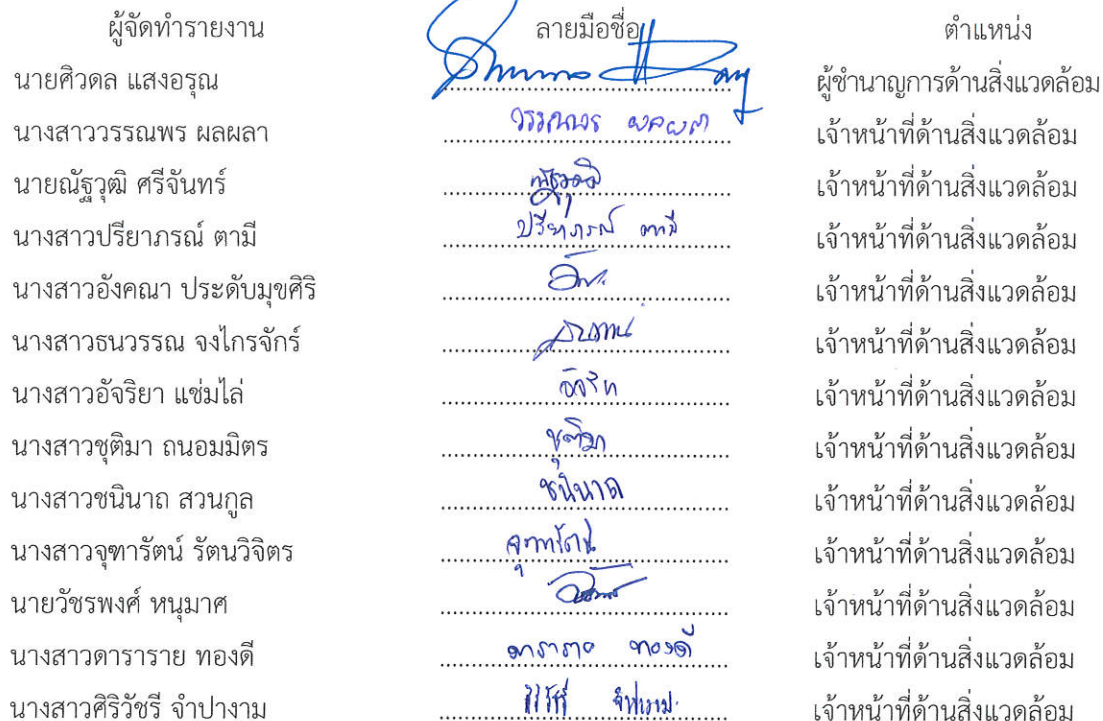 ผู้จัดทำรายงาน ลายมือชื่อ ตำแหน่ง
นายศิวดล แสงอรุณ ผู้ชำนาญการด้านสิ่งแวดล้อม
นางสาววรรณพร ผลผลา วรรณพร ผลผลา เจ้าหน้าที่ด้านสิ่งแวดล้อม
นายณัฐวุฒิ ศรีจันทร์ ณัฐวุฒิ เจ้าหน้าที่ด้านสิ่งแวดล้อม
นางสาวปรียาภรณ์ ตามี ปรียาภรณ์ ตามี เจ้าหน้าที่ด้านสิ่งแวดล้อม
นางสาวอังคณา ประดับมุขศิริ เจ้าหน้าที่ด้านสิ่งแวดล้อม
นางสาวธนวรรณ จงไกรจักร์ เจ้าหน้าที่ด้านสิ่งแวดล้อม
นางสาวอัจริยา แช่มไล่ เจ้าหน้าที่ด้านสิ่งแวดล้อม
นางสาวชุติมา ถนอมมิตร ชุติมา เจ้าหน้าที่ด้านสิ่งแวดล้อม
นางสาวชนินาถ สวนกูล ชนินาถ เจ้าหน้าที่ด้านสิ่งแวดล้อม
นางสาวจุฑารัตน์ รัตนวิจิตร จุฑารัตน์ เจ้าหน้าที่ด้านสิ่งแวดล้อม
นายวัชรพงศ์ หนุมาศ เจ้าหน้าที่ด้านสิ่งแวดล้อม
นางสาวดาราราย ทองดี ดาราราย ทองดี เจ้าหน้าที่ด้านสิ่งแวดล้อม
นางสาวศิริวัชรี จำปางาม เจ้าหน้าที่ด้านสิ่งแวดล้อม